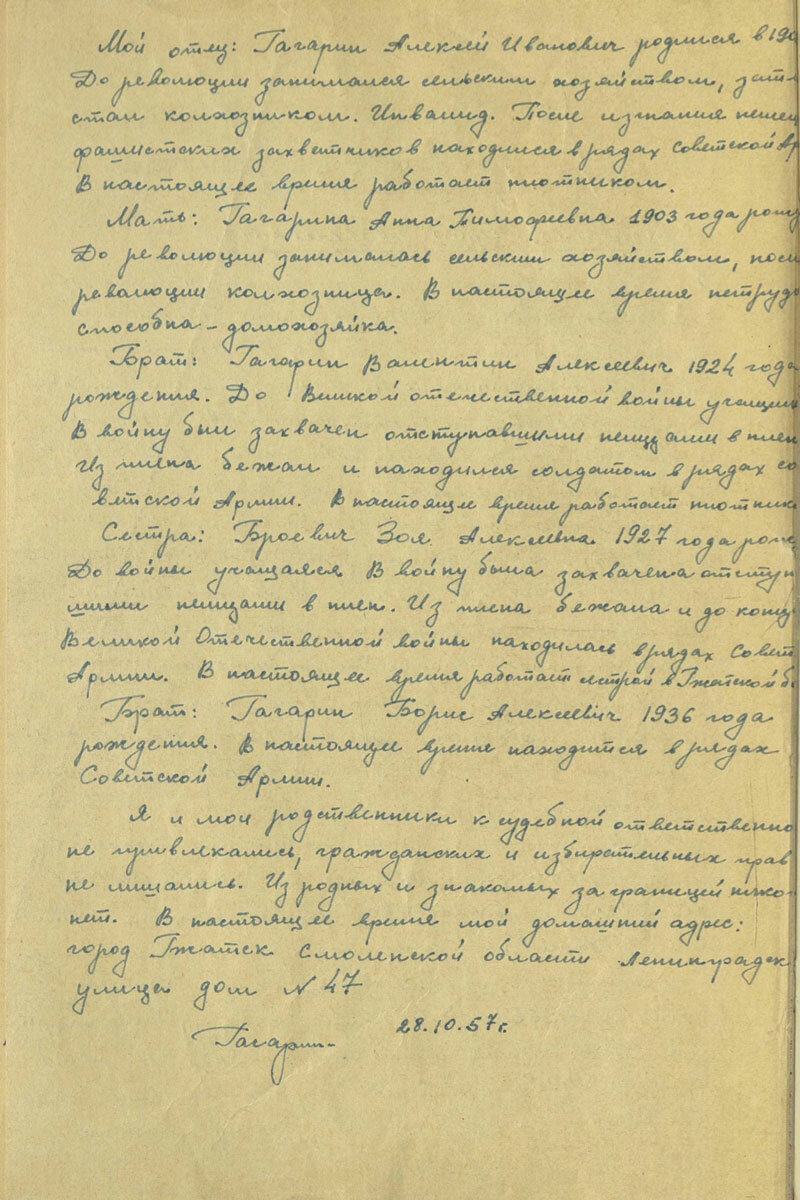 Мой отец: Гагарин Алексей Иванович родился в 190
До революции занимался сельским хозяйством, зат
стал колхозником. Инвалид. После изгнания немец
фашистских захветчиков находился в рядах Советской Ар
В настоящее время работает плотником.
Мать: Гагарина Анна Тимофеевна 1903 года рожд
До революции занималась сельским хозяйством, посл
революции колхозница. В настоящее время нетрудо
способна – домохозяйка.
Брат: Гагарин Валентин Алексеевич 1924 года
рождения. До Великой отечественной войны учащийс
В войну был захвачен отступавшими немцами в плен
Из плена бежал и находился солдатом в рядах со
ветской Армии. В настоящее время работает плотник
Сестра: Бруевич Зоя Алексеевна 1927 года рожд
До войны учащаяся. В войну была захвачена отступ
шими немцами в плен. Из плена бежала и до конца
Великой Отечественной войны находилась в рядах Совет
Армии. В настоящее время работает сестрой в Гжатской б
Брат: Гагарин Борис Алексеевич 1936 года
рождения. В настоящее время находится в рядах
Советской Армии.
Я и мои родственники к судебной ответственно
не привлекались, гражданских и избирательных прав
не лишались. Из родных и знакомых за границей нико
нет. В настоящее время мой домашний адрес:
город Гжатск Смоленской области Ленинградск
улица дом N 47
28.10.57г.
Гагарин